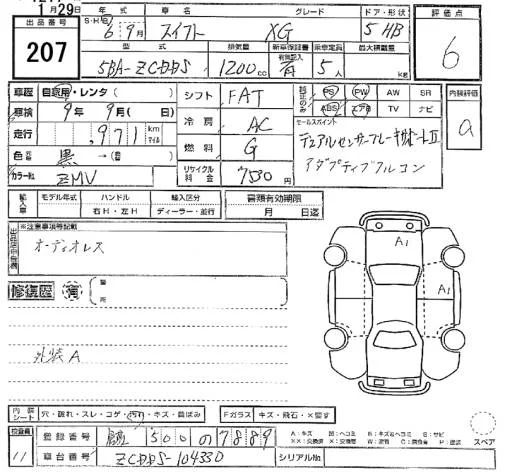 月29日
出品番号
207
S・H・R 年式 車名 グレード ドア・形状
6年 9月 スイフト XG 5 HB
型式 排気量 新車保証書 乗車定員 最大積載量
有無記入
5BA-ZCDDS 1200cc 有 5人 kg
評価点
6
車歴 自家用・レンタ( )
車検 9年 9月( 日)
走行 ,971 km マイル
色 黒 →( )
カラーNo. ZMV
シフト FAT
冷房 AC
燃料 G
リサイクル料金 7530円
純正のみ PS PW AW SR
ABS エアB TV ナビ
内装評価
a
セールスポイント
デュアルセンサーブレーキサポートⅡ
アダプティブクルコン
輸入車 モデル年式 ハンドル 輸入区分 書類有効期限
右H・左H ディーラー・並行 月 日迄
※注意事項等記載
オーディオレス
修復歴 有
外装A
A1
A1
内装シート 穴・破れ・スレ・コゲ・汚れ・キズ・首ばみ Fガラス キズ・飛石・X要す
検査員
11
登録番号 500 の 7889
車台番号 ZCDDS-104330 シリアルNo.
A:キズ U:ヘコミ B:キズ&ヘコミ S:サビ
XX:交換済 X:交換要 W:波有 C:腐食有 P:塗装
スペア